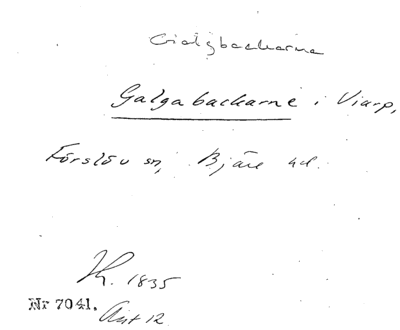 Galgbackarna
Galgabackarne i Viarp,
Förslöv sn, Bjäre hd.
1835
Nr 7041.
Akt 12